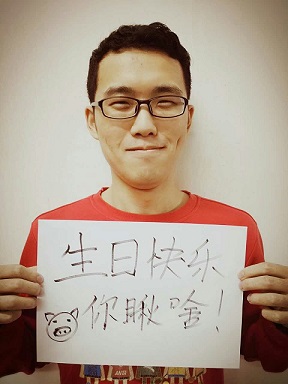 生日快乐
你瞅啥！